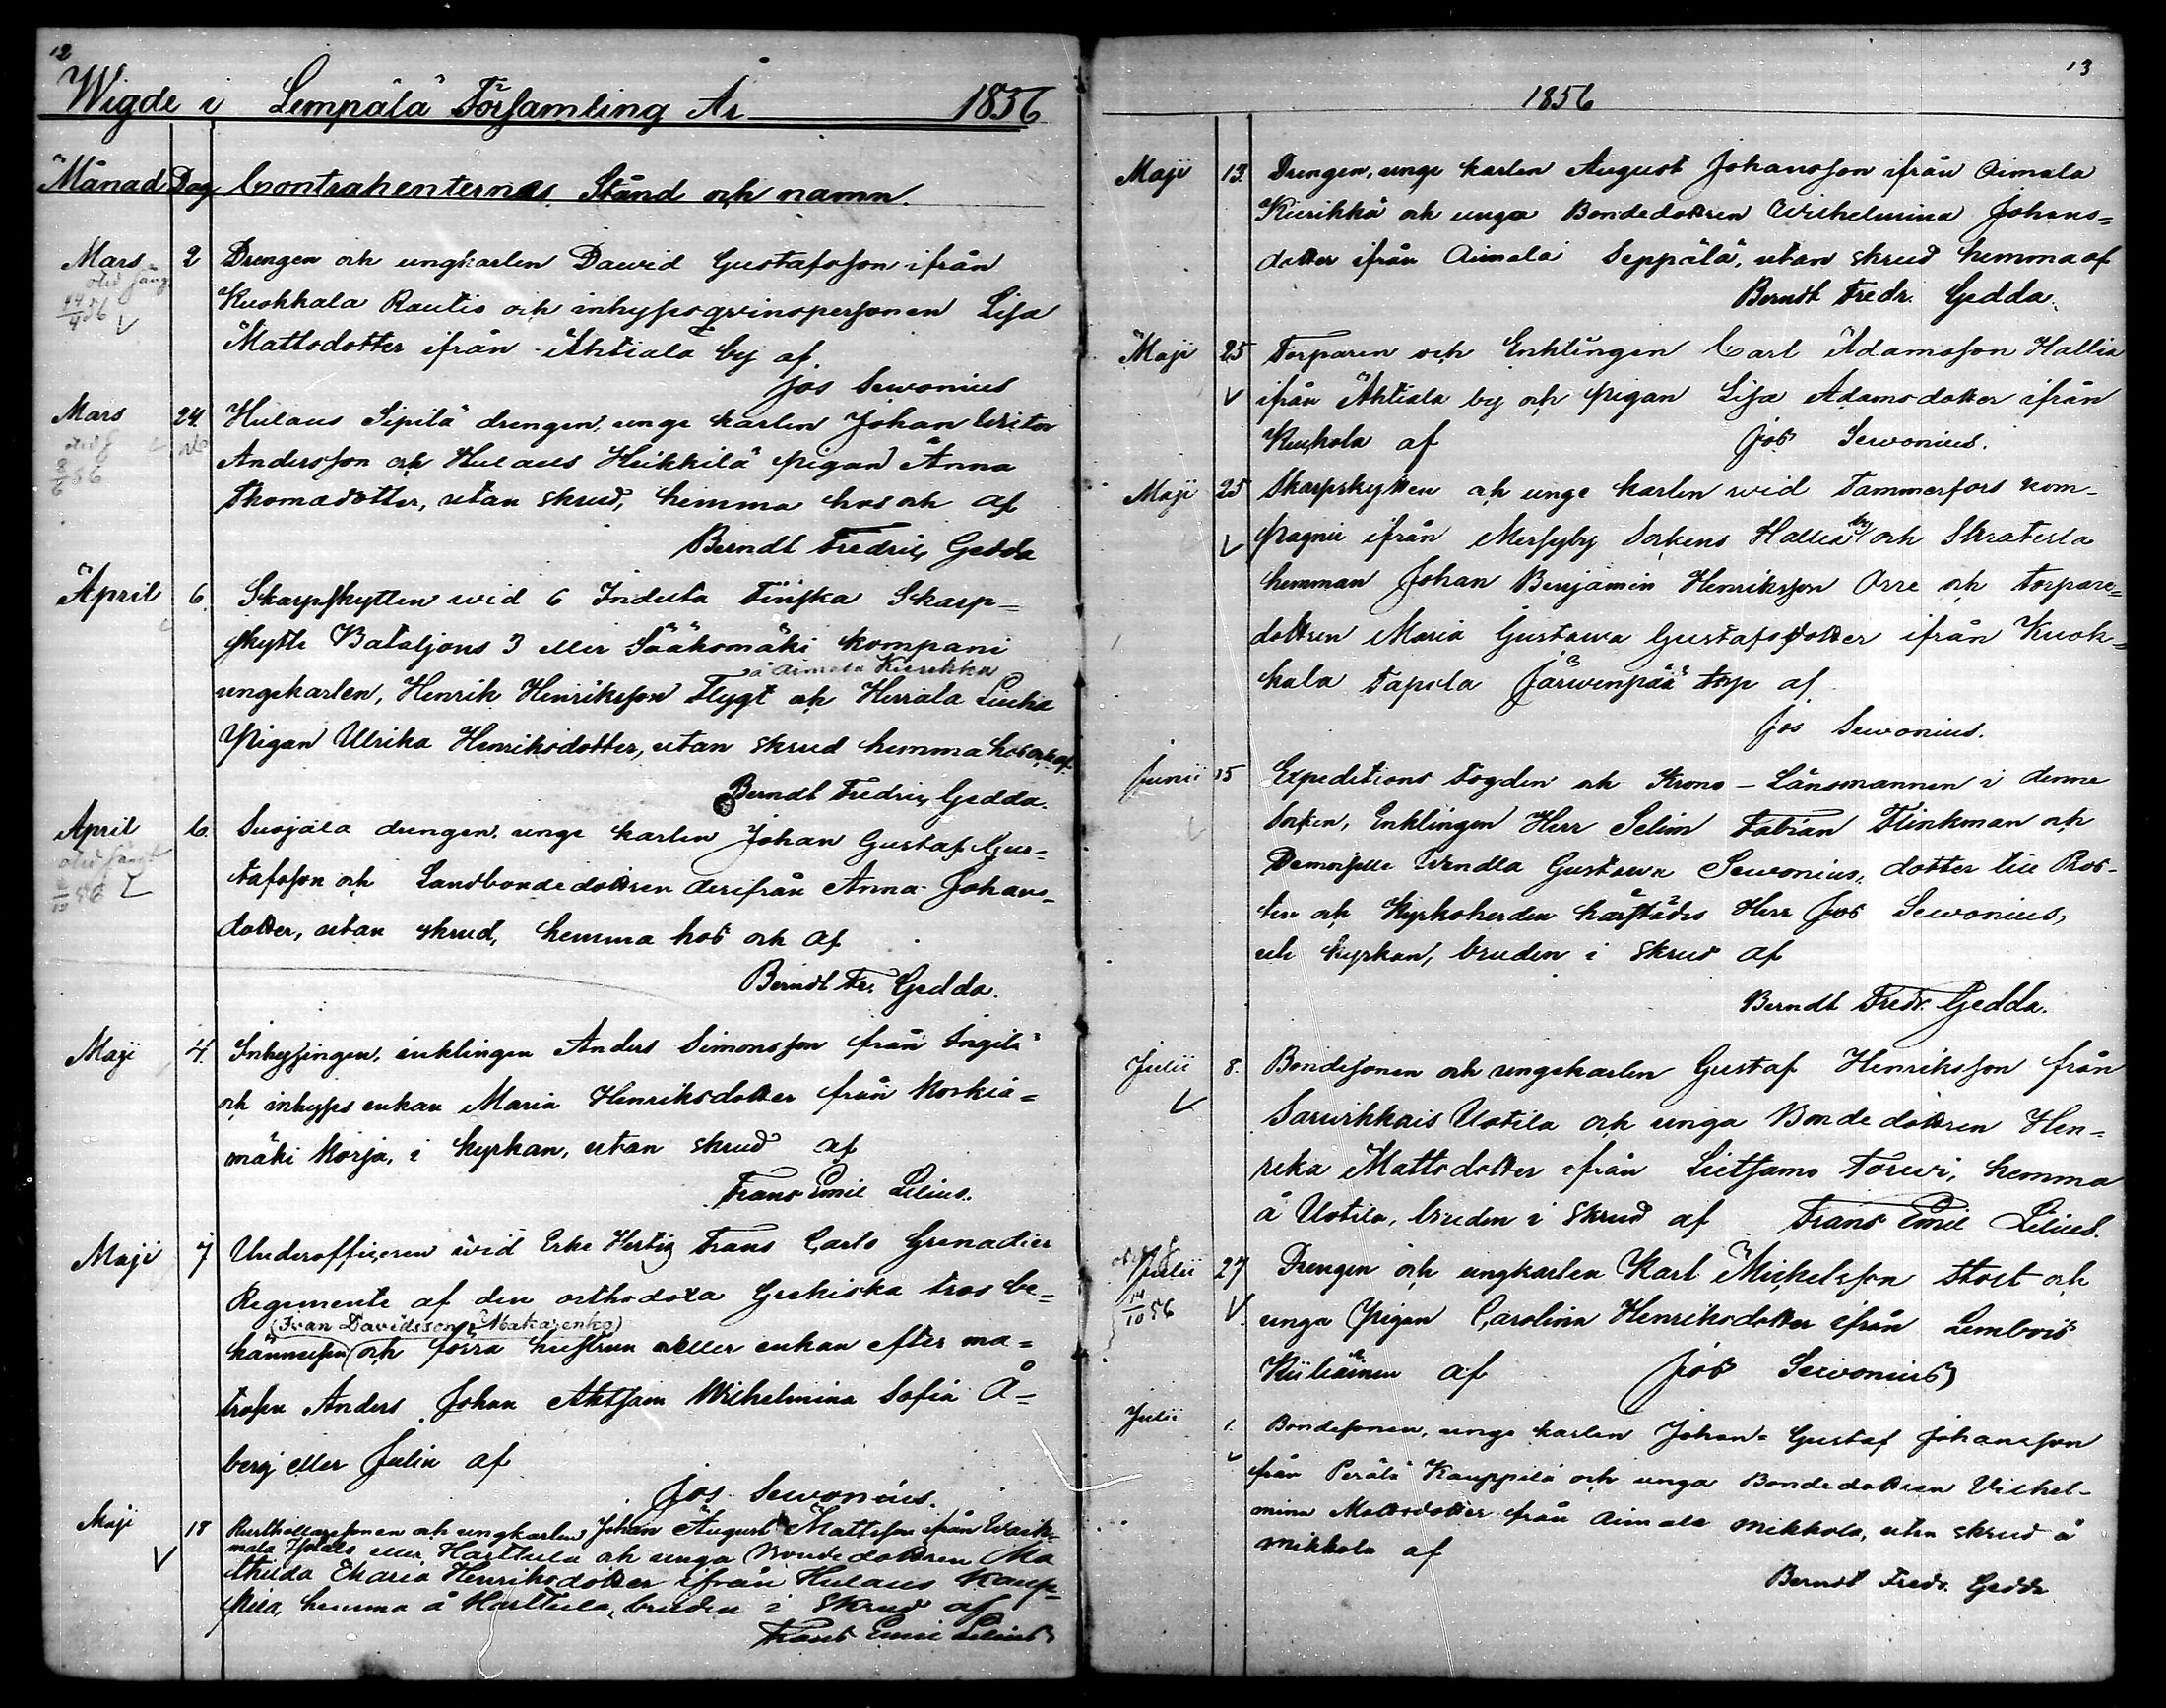 12
Wigde i Lempälä Församling År 1856
Månad Dag Contrahenternas Stånd och namn.
Mars 2 Drengen och ungkarlen Dawid Gustafsson ifrån
Kuokkala Rautio och inhysesqvinspersonen Lisa
Mattsdotter ifrån Ahtiala by af
Jos Sewonius
Mars 24. Hulaus Sipilä drengen, unge karlen Johan
Andersson och Hulaus Heikkilä pigan Anna
Thomasdotter, utan skrud, hemma hos och af
Berndt Fredric Gedda
April 6. Skarpskytten wid 6 Indelta Finska Skarp=
skytte Bataljons 3 eller Sääksmäki kompani
å Aimala Kurikka
ungekarlen, Henrik Henriksson Flygt och Herrala
Pigan Ulrika Henriksdotter, utan skrud hemma hos och af
Berndt Fredric Gedda.
April 6. Suojala drengen, unge karlen Johan Gustaf Gus=
tafsson och Landbondedottren derifrån Anna Johans=
dotter, utan skrud, hemma hos och af
Berndt Fr. Gedda.
Maji 4. Inhysingen, enklingen Anders Simonsson från Ingilä
och inhyses enkan Maria Henriksdotter från Korkia=
mäki Korja, i kyrkan, utan skrud af
Frans Emil Lilius.
Maji 7 Underofficeren wid Erke Hertig Frans Carls Grenadier
Regimente af den orthodoxa Grekiska tros be=
(Ivan Davidsson Makarenko)
kännelsen och förra hustrun eller enkan efter ma=
trosen Anders Johan Wilhelmina Sofia Å=
berg eller Julin af
Jos Sewonius.
Maji 18 Rusthollaresonen och ungkarlen Johan August Mattsson från Waik=
mala eller Harttula och unga Bondedottren Ma
thilda Maria Henriksdotter ifrån Hulaus Kaup=
pila, hemma å Harttula, bruden i skrud af
Frans Emil Lilius
13
1856
Maji 13. Drengen, unge karlen August Johansson ifrån Aimala
Kurikka och unga Bondedottren Wilhelmina Johans=
dotter ifrån Aimala Seppälä, utan skrud hemma af
Berndt Fredr. Gedda.
Maji 25 Torparen och Enklingen Carl Adamsson Hallia
ifrån Ahtiala by och pigan Lisa Adamsdotter ifrån
Kukola af Jos Sewonius.
Maji 25 Skarpskytten och unge karlen wid Tammerfors kom=
pagnie ifrån Messuby Sockens Hallila by och
hemman Johan Benjamin Henriksson Orre och torpare=
dottren Maria Gustawa Gustafsdotter ifrån Kuok=
kala Tapola Järwenpää torp af
Jos Sewonius.
Junii 15 Expeditions Fogden och Krono-Länsmannen i denne
Socken, Enklingen Herr Selim Fabian Flinkman och
Demoiselle Wendla Gustawa Sewonius, dotter till Pros=
ten och Kyrkoherden härstädes Herr Jos Sewonius,
uti kyrkan, bruden i skrud af
Berndt Fredr. Gedda.
Julii 8. Bondesonen och ungekarlen Gustaf Henriksson från
Sarwikkais Uotila och unga Bonde dottren Hen=
rika Mattsdotter ifrån Lietsamo Torwi, hemma
å Uotila, bruden i skrud af Frans Emil Lilius.
Julii 27 Drengen och ungkarlen Karl Michelsson Stolt och
unga Pigan Carolina Henriksdotter ifrån Lembois
af Jos Sewonius
Julii 1. Bondesonen, unge karlen Johan Gustaf Johansson
från Perälä Kauppila och unga Bondedottren Vilhel-
mina Mattsdotter från Aimala Mikkola, utan skrud å
Mikkola af
Berndt Fredr. Gedda